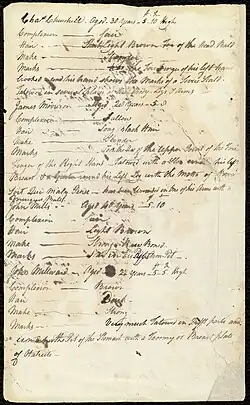 Chas Churchill. Aged 30 years - 5..10 high
Complexion — Fair
Hair — Short Light Brown Top of the Head Bald
Make — Strong
Marks — Fore Finger of his left hand
Crooked and his hand shows the Marks of a Severe Scald
Tatowed in several places of his Body, Legs & Arms
James Morrison Aged 28 years - 5..8
Complexion — Sallow
Hair — Long black Hair
Make — Slender
Marks — The Upper Joint of the Fore
Finger of the Right Hand. Tatowed with a Star under his left
Breast & a Garter round his Left Leg with the Motto of Honi
Soit Qui Mal y Pense — has been wounded in one of his Arms with a
Musquet Ball
John Mills — Aged 40 years — 5..10
Complexion — Fair
Hair — Light Brown
Make — Strong & Raw Boned
Marks — Scar in his Right Arm Pit
John Millward — Aged 22 years 5..5 high
Complexion — Brown
Hair — Brown
Make — Strong
Marks — Very much Tatowed in different parts and
under the Pit of the Stomach with a Taoomy or Breast plate
of Otaheite